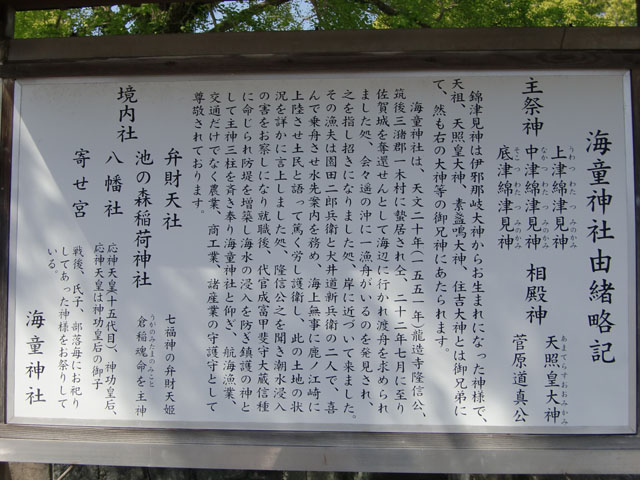 海童神社由緒略記
主祭神
うわつわたつみのかみ
上津綿津見神
なかつわたつみのかみ
中津綿津見神
そこつわたつみのかみ
底津綿津見神
相殿神
あまてらすおおみかみ
天照皇大神
菅原道真公
錦津見神は伊邪那岐大神からお生まれになった神様で、
天祖、天照皇大神、素盞鳴大神、住吉大神とは御兄弟に
て、然も右の大神等の御兄神にあたられます。
海童神社は、天文二十年(一五五一年)龍造寺隆信公、
筑後三潴郡一木村に蟄居され仝、二十二年七月に至り
佐賀城を奪還せんとして海辺に行かれ渡舟を求められ
ました処、会々遥の沖に一漁舟がいるのを発見され、
之を指し招きになりました処、岸に近づいて来ました。
その漁夫は園田二郎兵衛と犬井道新兵衛の二人で、喜
んで乗舟させ水先案内を務め、海上無事に鹿ノ江崎に
上陸させ土民と語って篤く労し護衛し、此の土地の状
況を詳かに言上しました処、隆信公之を聞き潮水浸入
の害をお察しになり就職後、代官成富甲斐守大蔵信種
に命じられ防堤を増築し海水の浸入を防ぎ鎮護の神と
して主神三柱を斉き奉り海童神社と仰ぎ、航海漁業、
交通だけでなく農業、商工業、諸産業の守護守として
尊敬されております。
境内社
弁財天社
七福神の弁財天姫
池の森稲荷神社
うかのみたまのみこと
倉稲魂命を主神
八幡社
応神天皇(十五代目)、神功皇后、
応神天皇は神功皇后の御子
寄せ宮
戦後、氏子、部落毎にお祀り
してあった神様をお祭りして
いる。
海童神社